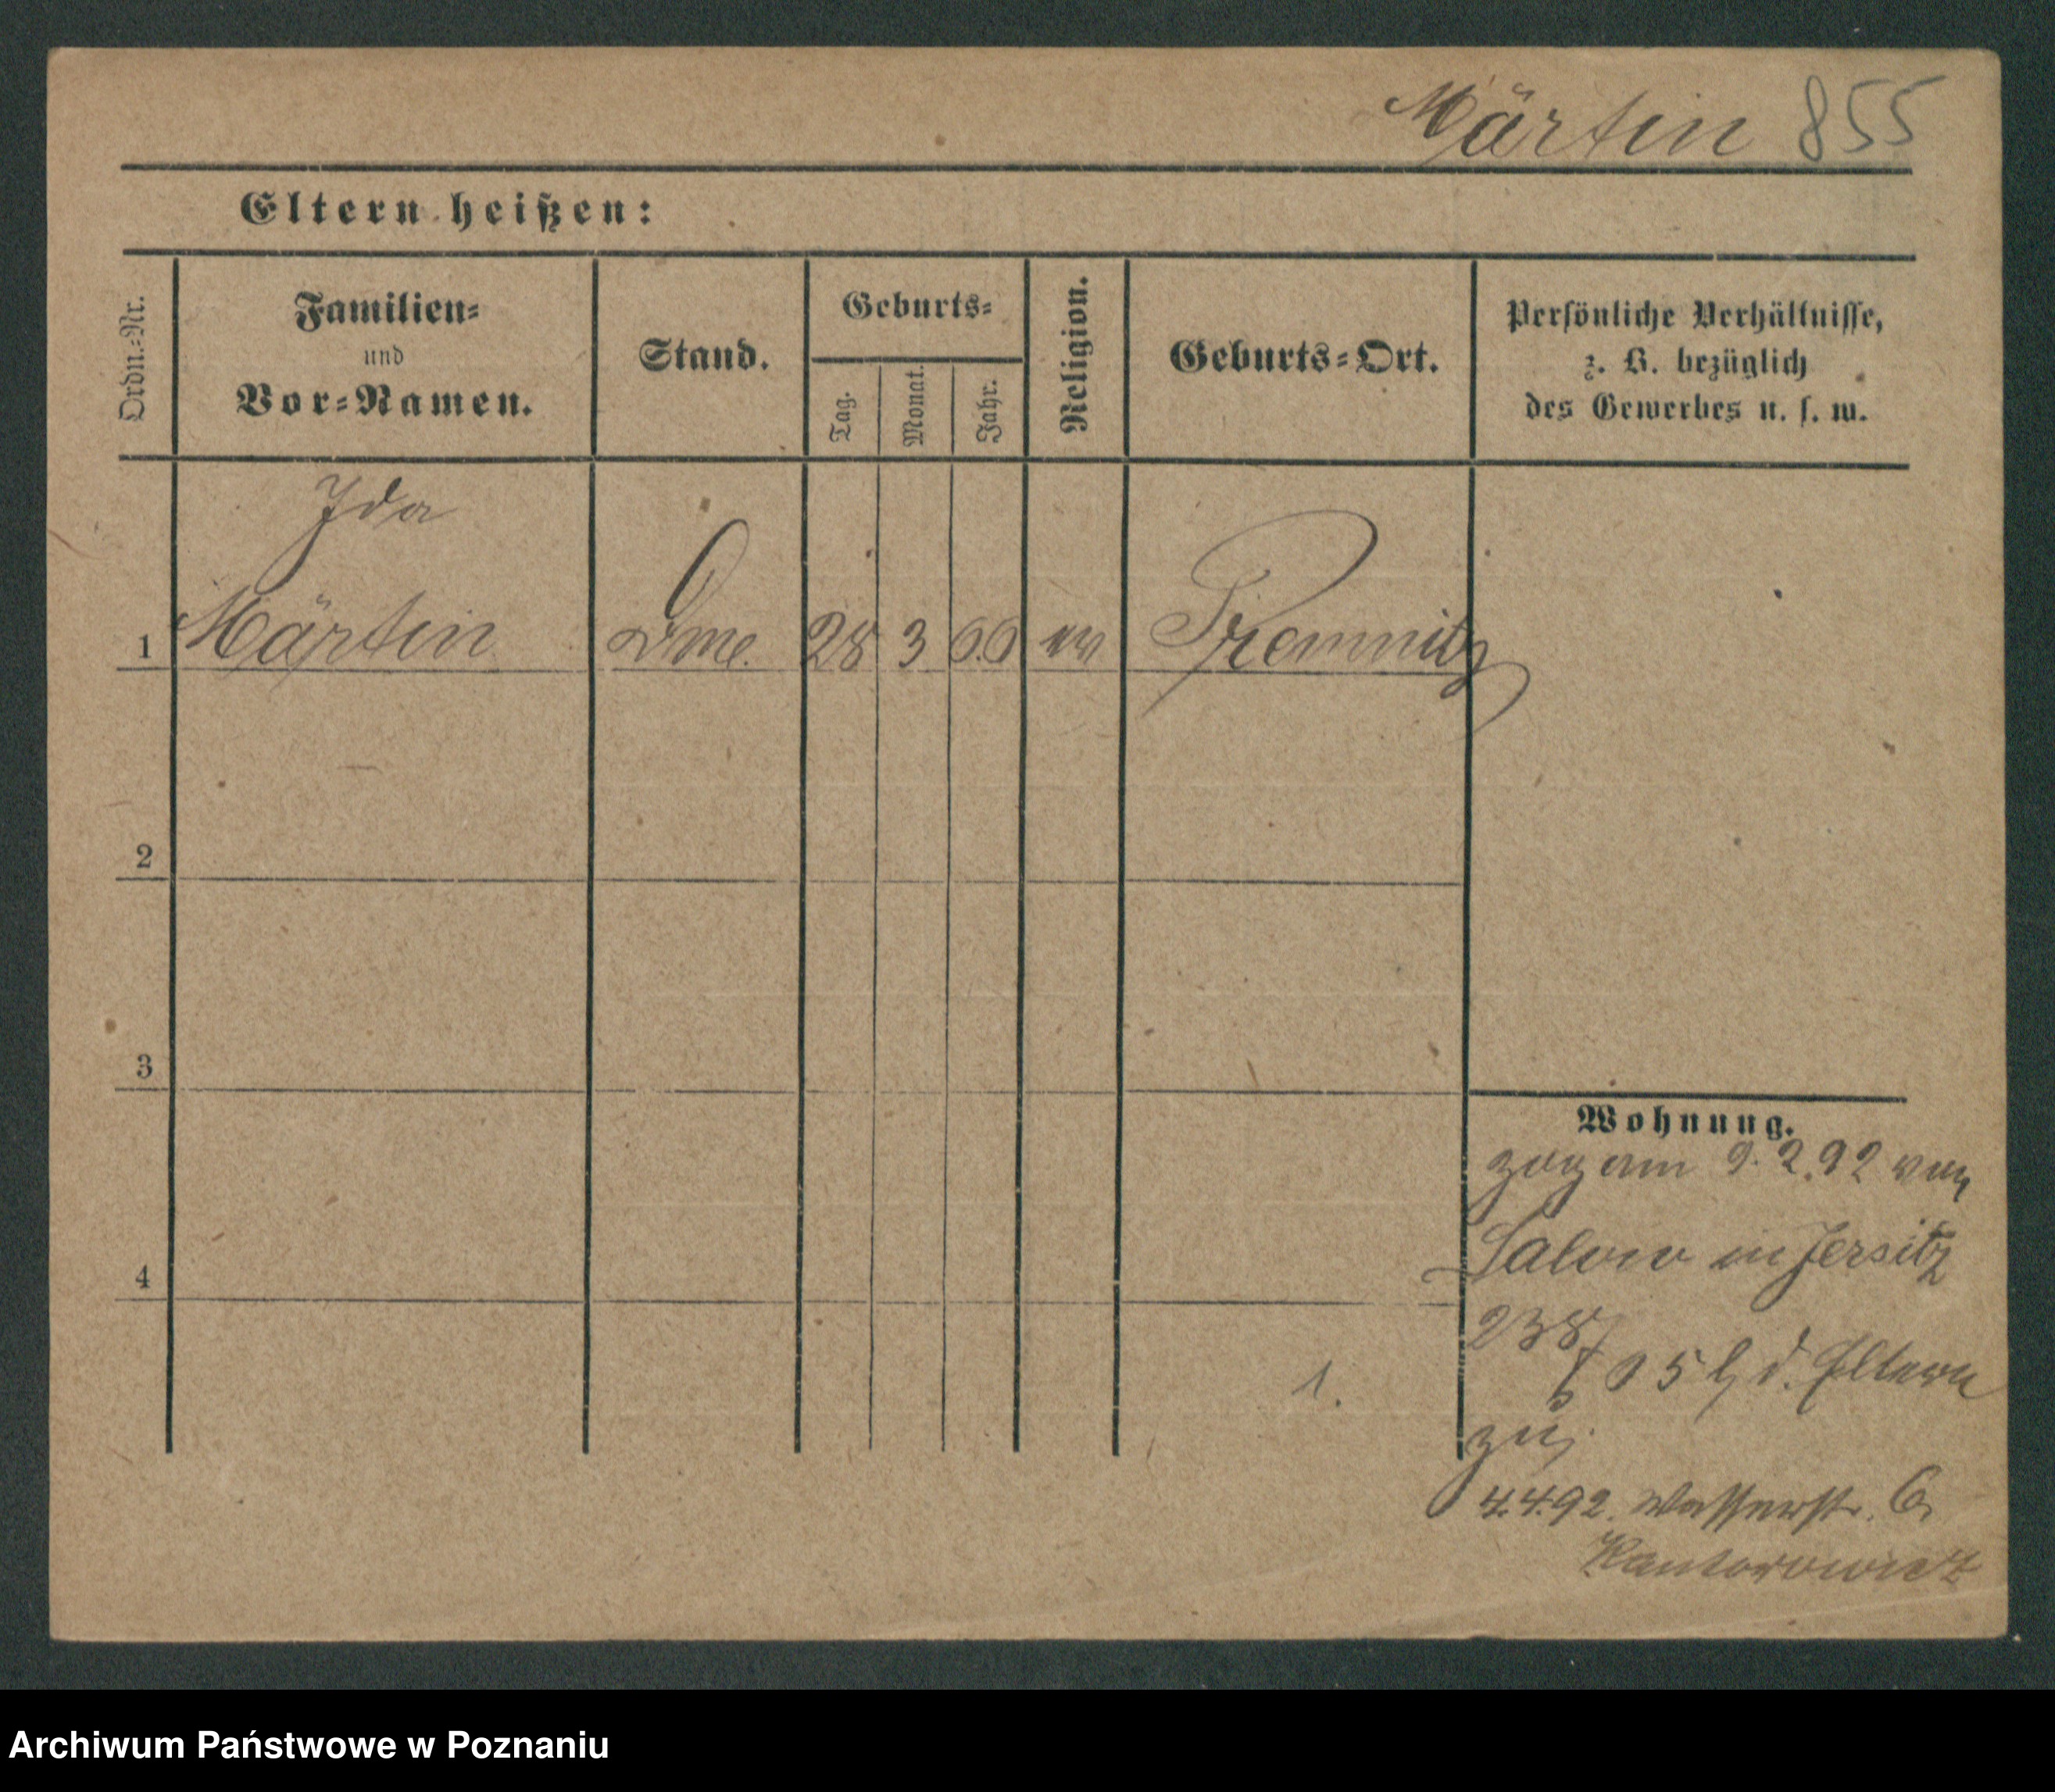 Märtin 855
Eltern heißen:
Ordn.-Nr.
Familien-
und
Vor-Namen.
Stand.
Geburts-
Tag.
Monat.
Jahr.
Religion.
Geburts-Ort.
Persönliche Verhältnisse,
z. B. bezüglich
des Gewerbes u. s. w.
Ida
1 Märtin 28 3 60 ev Premnitz
2
3
4
Wohnung.
zog am 9.2.92 von
in Jersitz
238
d. Eltern
1.
4.4.92. Wasserstr. 6
Kantorowicz
Archiwum Państwowe w Poznaniu